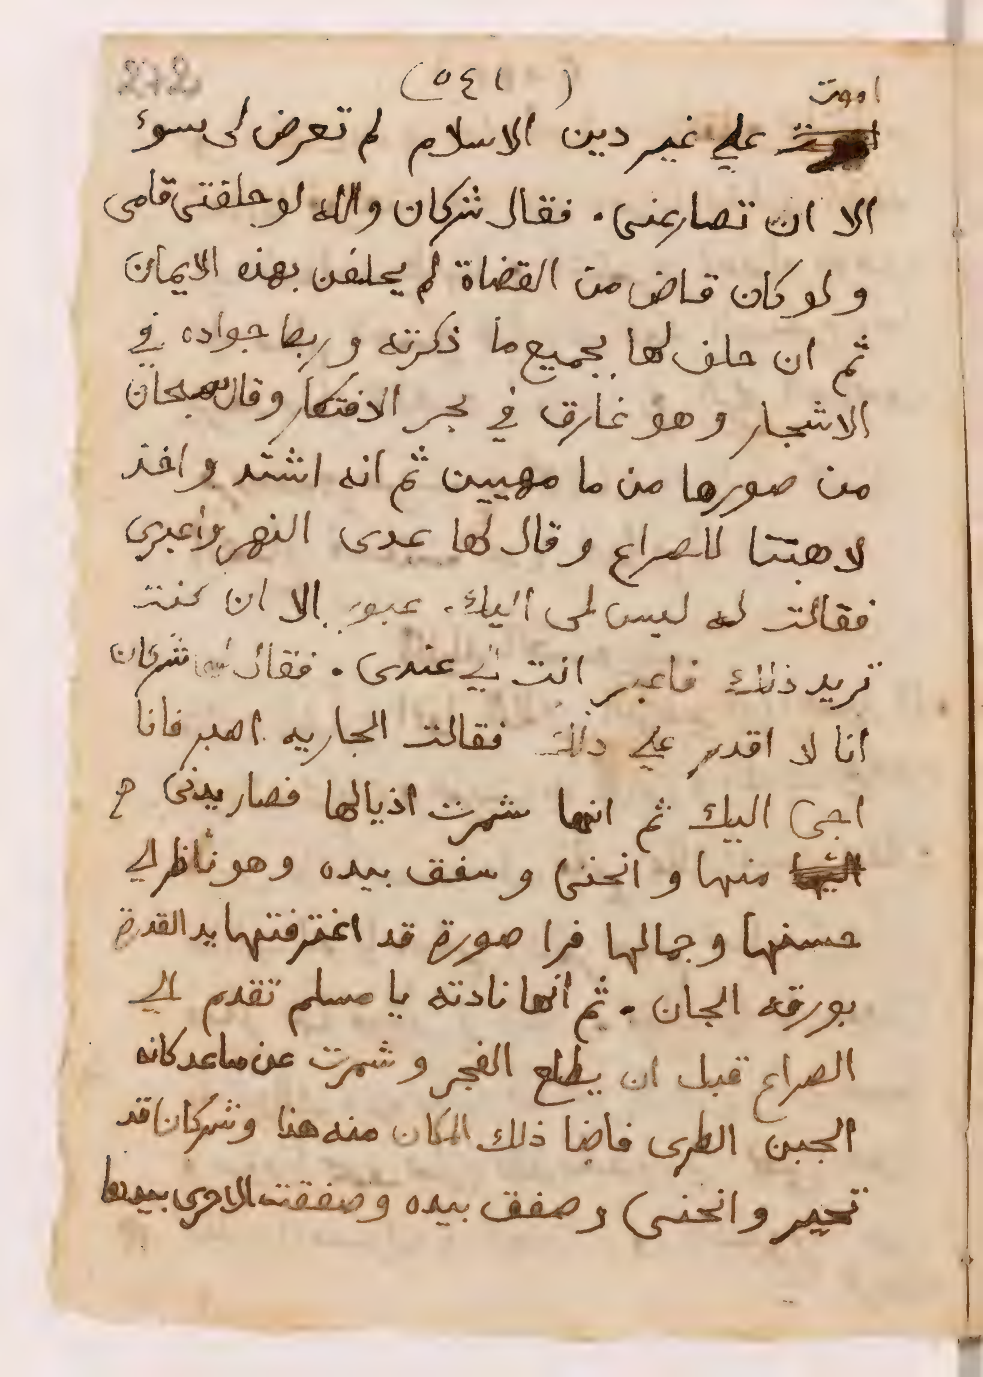 272
(٥٤١)
اموت
علي غير دين الاسلام لم تعرض لى بسوء
الا ان تصارعنى. فقال شركان والله لو حلفتى قامى
و لو كان قاض من القضاة لم يحلفن بهذه الايمان
ثم ان حلف لها بجميع ما ذكرته و ربط جواده في
الاشجار و هو غارق في بحر الافتكار وقال سبحان
من صورها من ما مهيين ثم انه اشتد و اخذ
لاهبتا للصراع و قال لها عدى النهر واعبري
فقالت له ليس لى اليك. عبور الا ان كنت
تريد ذلك فاعبر انت الي عندى. فقال لها شركان
انا لا اقدر علي ذلك فقالت الجاريه اصبر فانا
اجى اليك ثم انها شمرت اذيالها فصار يدنى
منها و انحنى و سفق بيده و هو ناظر الي
حسنها و جمالها فرا صورة قد اغترفتها يد القدرة
بورقه الجان. ثم انها نادته يا مسلم تقدم الي
الصراع قبل ان يطلع الفجر و شمرت عن ساعد كانه
الجبن الطرى فاضا ذلك المكان منه هذا وشركان قد
تحير و انحنى و صفق بيده و صفقت الاخرى بيدها